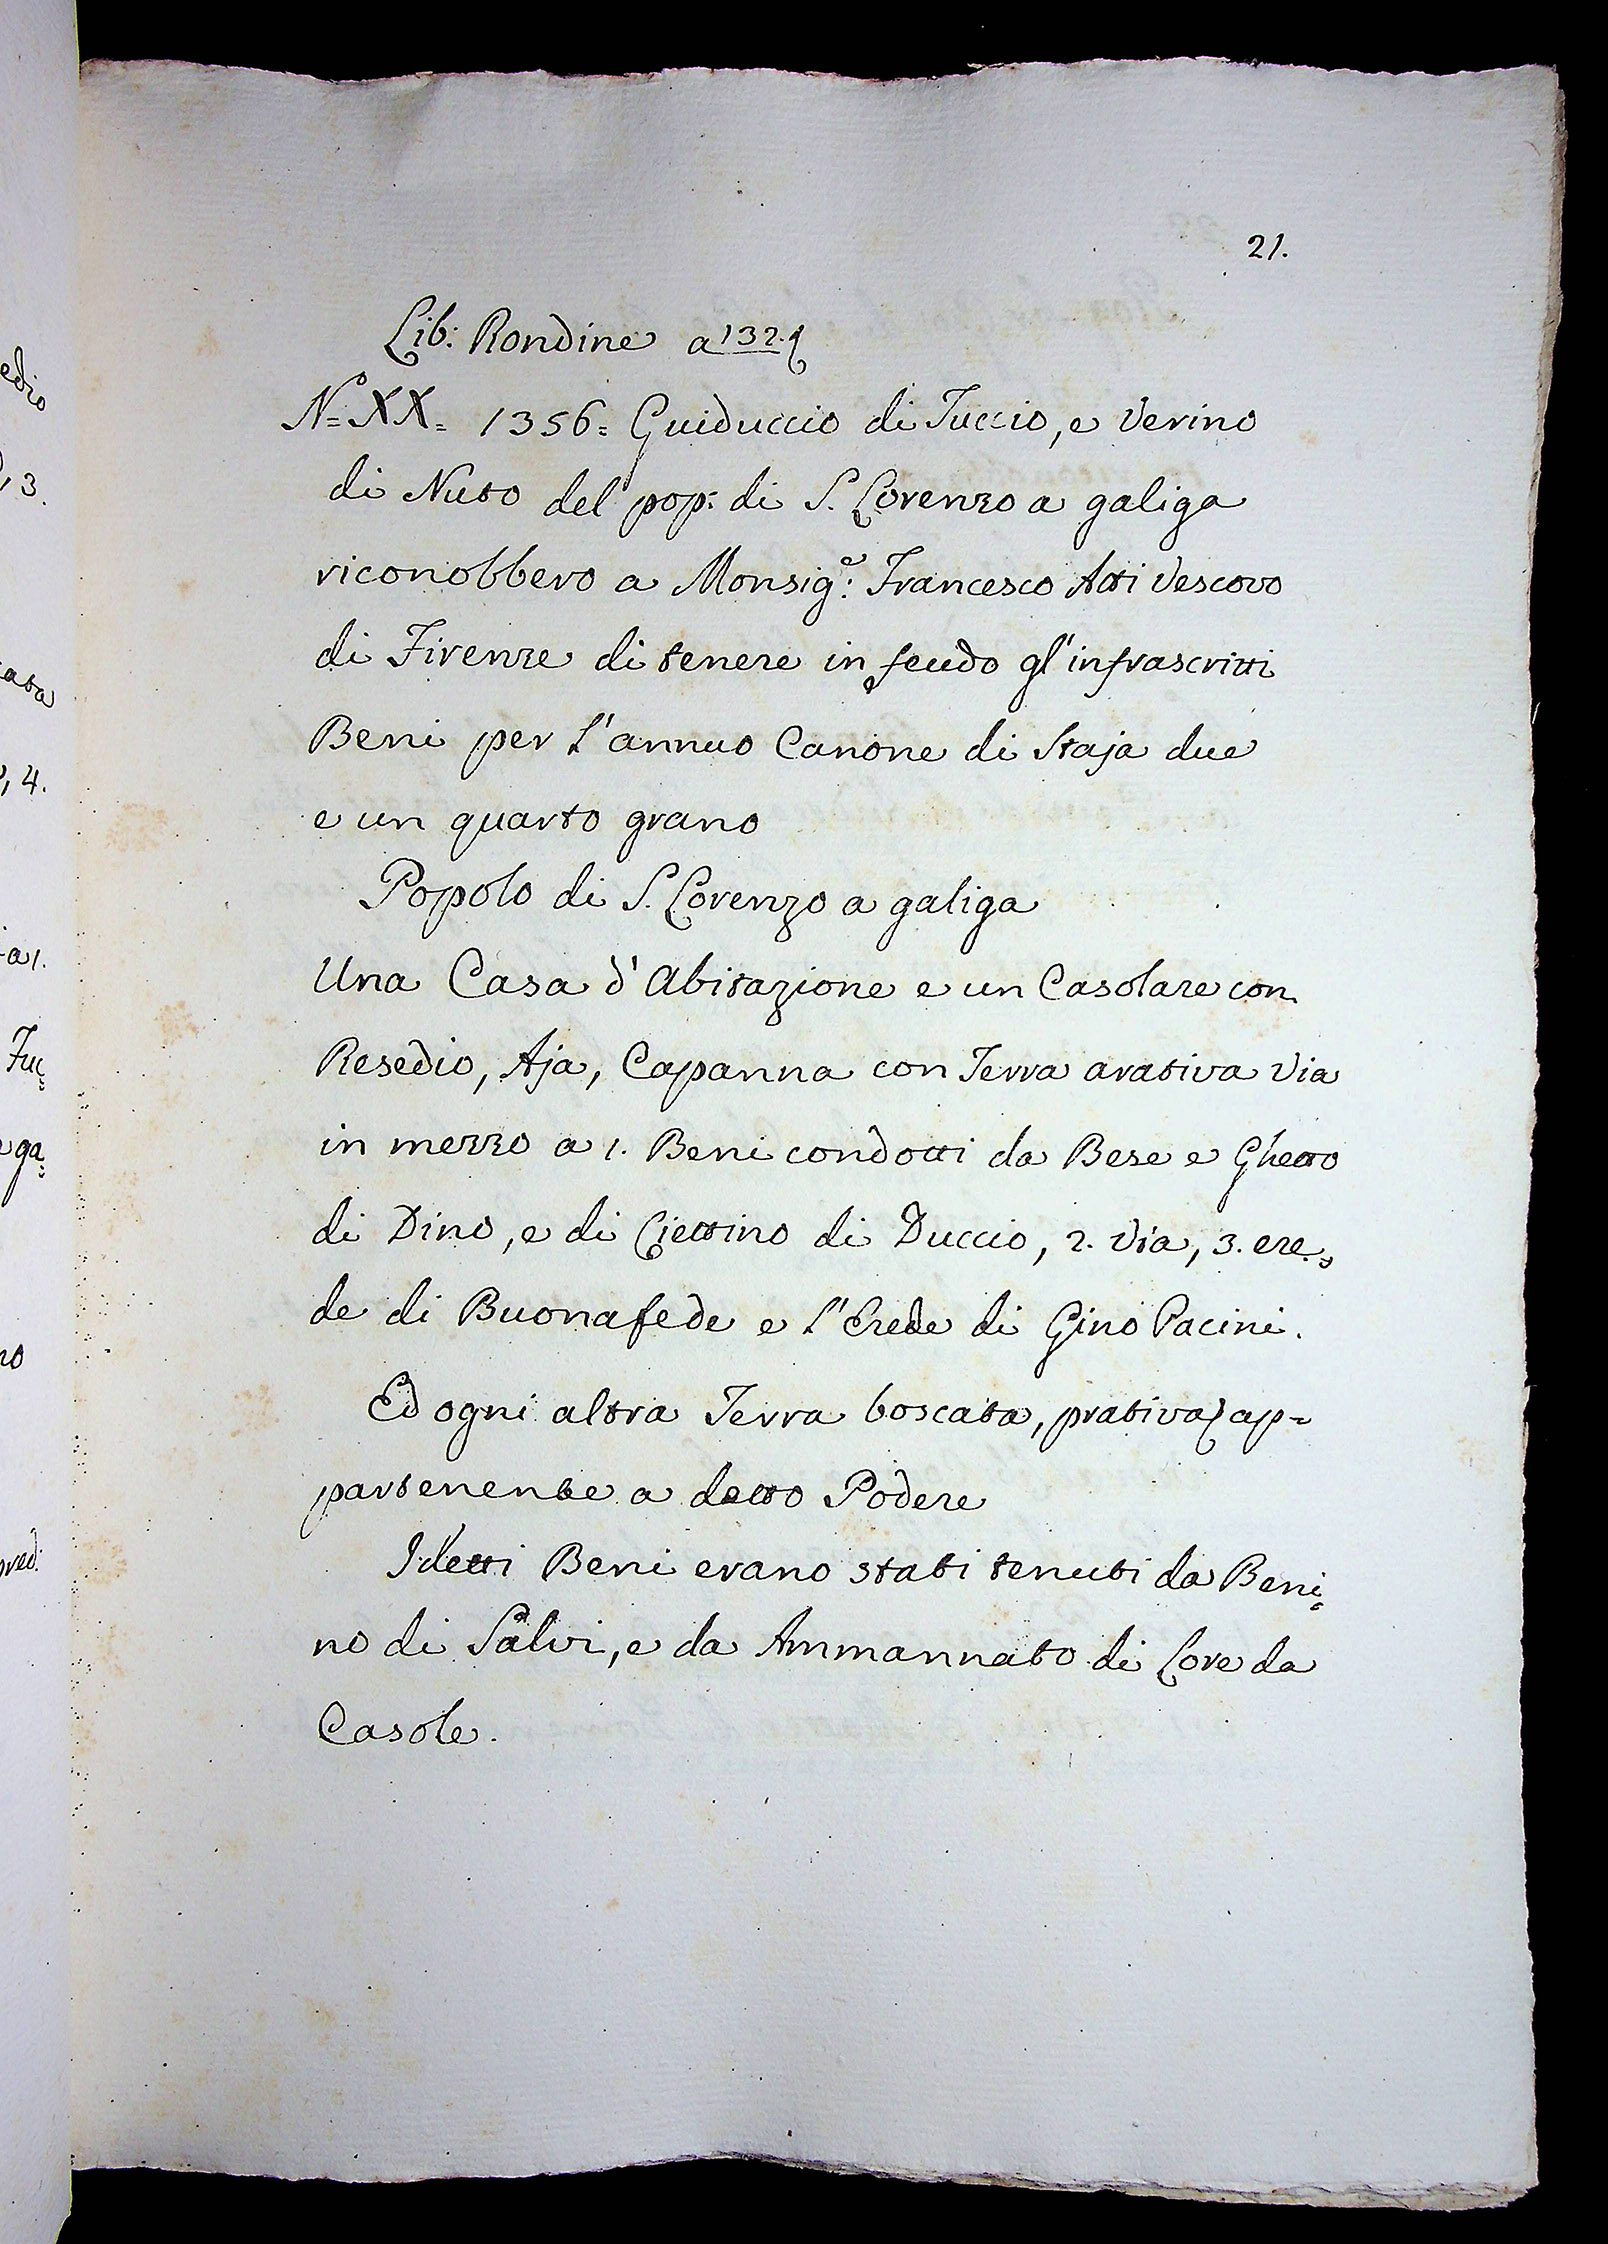 21.
Lib: Rondine a 132.
N=XX= 1356= Guiduccio di Tuccio, e Verino
di Nuto del pop: di S. Lorenzo a galiga
riconobbero a Monsig.e: Francesco Atti Vescovo
di Firenze di tenere in feudo gl'infrascritti
Beni per l'annuo Canone di Staja due
e un quarto grano
Popolo di S. Lorenzo a galiga
Una Casa d'Abitazione e un Casolare con
Resedio, Aja, Capanna con Terra arativa Via
in mezzo a 1. Beni condotti da Bese e Ghetto
di Dino, e di Ciettino di Duccio, 2. Via, 3. ere=
de di Buonafede e l'Erede di Gino Pacini.
Ed ogni altra Terra boscata, prativa ap=
partenente a detto Podere
I detti Beni erano stati tenuti da Beni=
no di Salvi, e da Ammannato di Lore da
Casole.
edio
, 3.
, 4.
a 1.
Tuc=
ga=
no
pred: